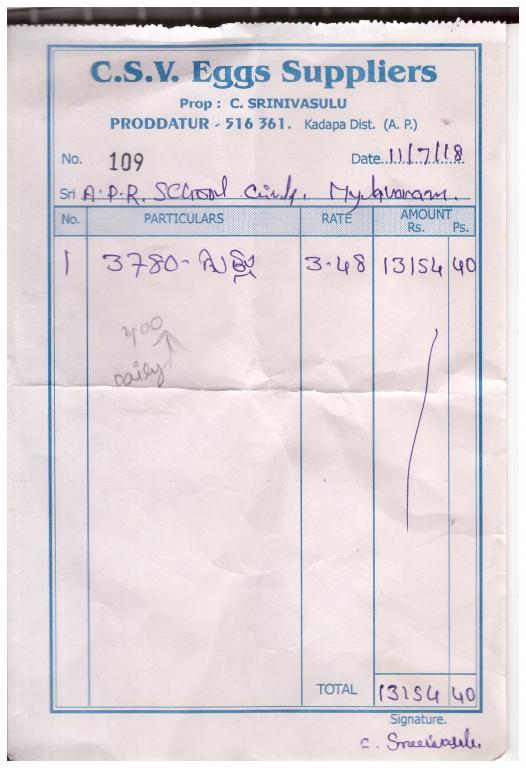 C.S.V. Eggs Suppliers
Prop : C. SRINIVASULU
PRODDATUR - 516 361. Kadapa Dist. (A. P.)
No. 109 Date 11/7/18
Sri A.P.R. School Mylavaram.
No. PARTICULARS RATE AMOUNT
Rs. Ps.
1 3780- 3-48 13154 40
400
Daily
TOTAL 13154 40
Signature.
C. Sreenivasulu